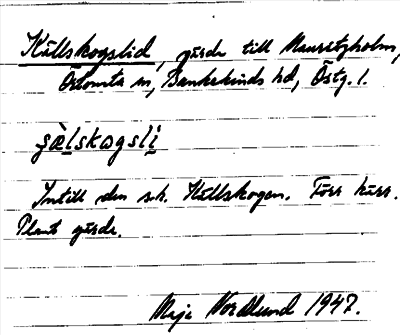 Källskogslid, gärde till Mauritzholm,
Örtomta sn, Bankekinds hd, Östg. l.
şälskogsli
Intill den s.k. Källskogen. Torr kärr.
Plant gärde.
Maja Nordlund 1947.